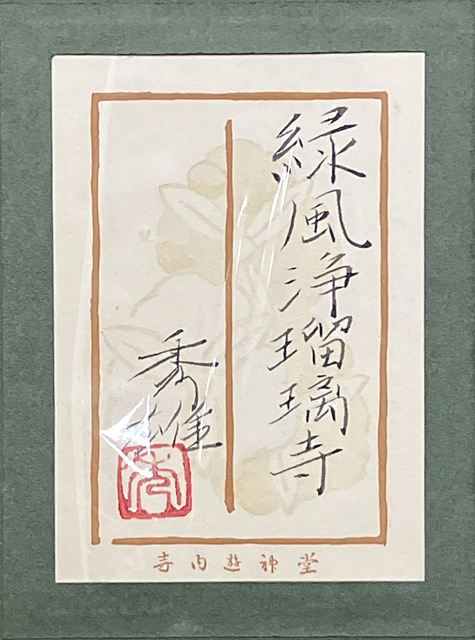 緑風浄瑠璃寺
秀雄
寺内遊神堂